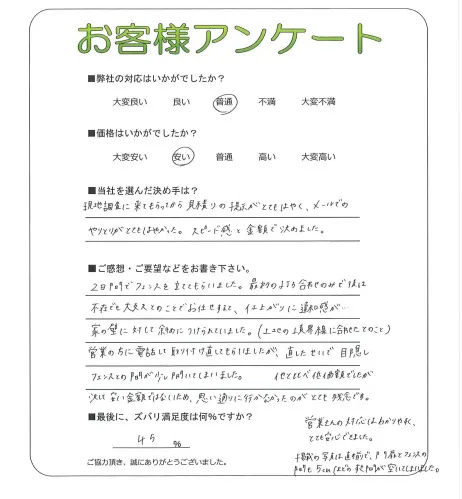 お客様アンケート
■弊社の対応はいかがでしたか？
大変良い 良い 普通 不満 大変不満
■価格はいかがでしたか？
大変安い 安い 普通 高い 大変高い
■当社を選んだ決め手は？
現地調査に来てもらってから見積りの提示がとてもはやく、メールでの
やりとりがとてもはやかった。スピード感と金額で決めました。
■ご感想・ご要望などをお書き下さい。
2日間でフェンスを立ててもらいました。最初の打ち合わせのみで後は
不在でも大丈夫とのことでお任せすると、仕上がりに違和感が…
家の壁に対して斜めにつけられていました。(上の境界線に合わせたとのこと)
営業の方に電話して取り付け直してもらいましたが、直したせいで目隠し
フェンスとの間が少し開いてしまいました。 他と比べ低価額でしたが
決して安い金額ではないため、思い通りに行かなかったのがとても残念です。
■最後に、ズバリ満足度は何%ですか？
45 %
ご協力頂き、誠にありがとうございました。
営業さんの対応はわかりやすく、
とても安心できました。
掲載の写真は直す前で、門扉とフェンスの
間も5cmほどのすき間が空いてしまいました。